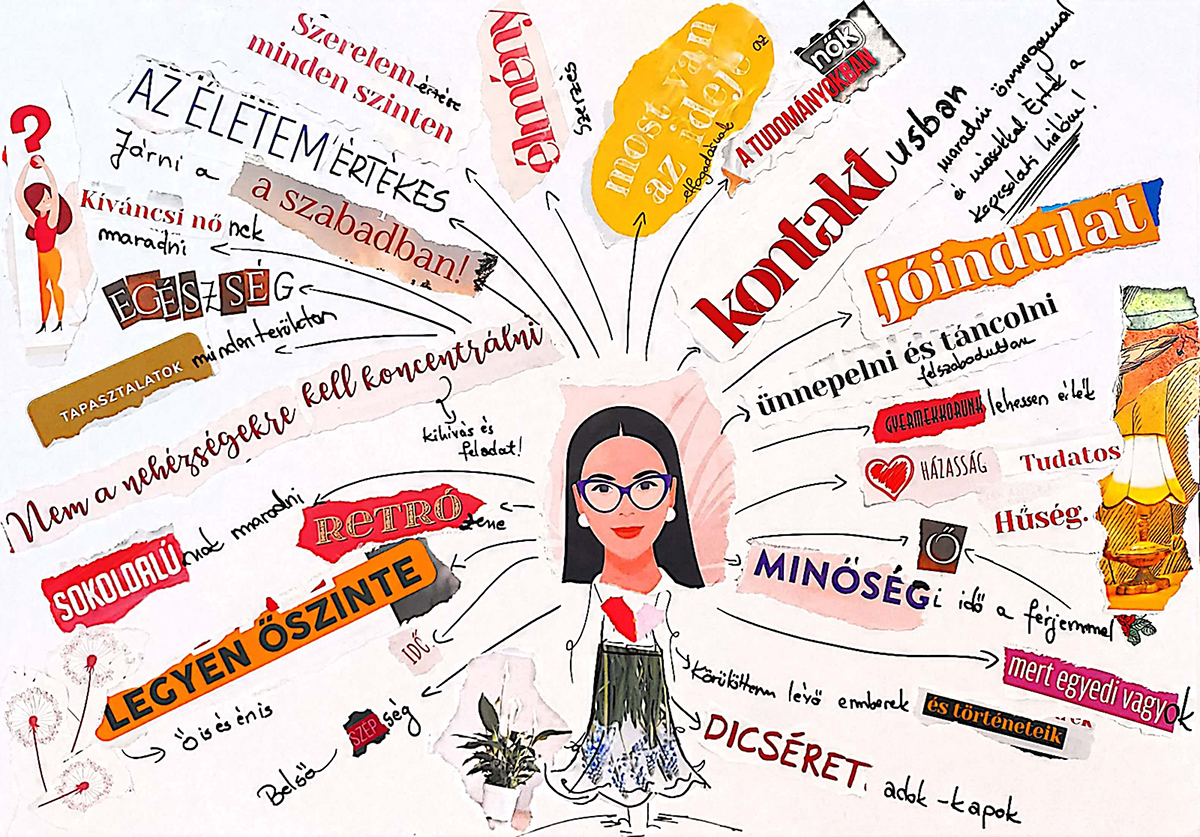 Szerelem értése
minden szinten
élmény
szerzés
most van
az ideje az
elfogadásnak
nők
A TUDOMÁNYOKBAN
kontaktusban
maradni önmagammal
és másokkal Érték a
kapcsolati hálóm!
AZ ÉLETEM ÉRTÉKES
Járni a
a szabadban!
?
Kíváncsi nőnek
maradni
EGÉSZSÉG
TAPASZTALATOK minden területen
Nem a nehézségekre kell koncentrálni
kihívás és
feladat!
jóindulat
ünnepelni és táncolni
felszabadultan
GYERMEKKORUNK lehessen érték
HÁZASSÁG
Tudatos
Hűség.
Ő
MINŐSÉGi idő a férjemmel
mert egyedi vagyok
SOKOLDALÚnak maradni
RETRÓ zene
LEGYEN ŐSZINTE
Ő is és én is
IDŐ
Belső SZÉPség
Körülöttem lévő emberek és történeteik
DICSÉRET. adok - kapok